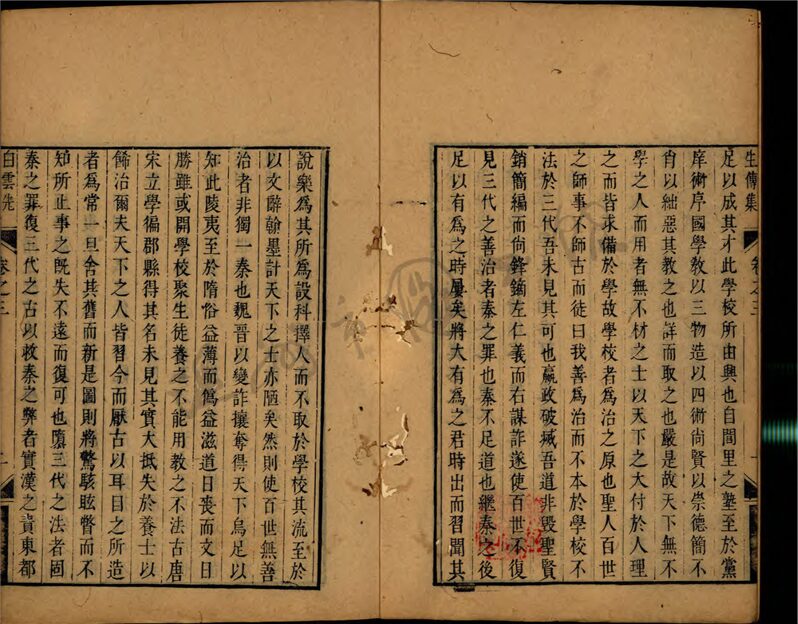 生傳集
卷之三
足以成其才此學校所由興也自閭里之塾至於黨
庠術序國學敎以三物造以四術尚賢以崇德簡不
肖以絀惡其教之也詳而取之也嚴是故天下無不
學之人而用者無不材之士以天下之大付於人理
之而皆求備於學故學校者為治之原也聖人百世
之師事不師古而徒曰我善為治而不本於學校不
法於三代吾未見其可也嬴政破滅吾道非毀聖賢
銷簡編而尚鋒鏑左仁義而右謀詐遂使百世不復
見三代之善治者秦之罪也秦不足道也繼秦之後
足以有為之時屢矣將大有為之君時出而習聞其
說樂為其所為設科擇人而不取於學校其流至於
以文辭翰墨計天下之士亦陋矣然則使百世無善
治者非獨一秦也魏晉以變詐攘奪得天下烏足以
知此陵夷至於隋俗益薄而僞益滋道日喪而文日
勝雖或開學校聚生徒養之不能用教之不法古唐
宋立學徧郡縣得其名未見其實大抵失於養士以
飾治爾夫天下之人皆習今而厭古以耳目之所造
者爲常一旦舍其舊而新是圖則將驚駭眩瞀而不
知所止事之既失不遠而復可也隳三代之法者固
秦之罪復三代之古以救秦之弊者實漢之責東都
白雲先
卷之三